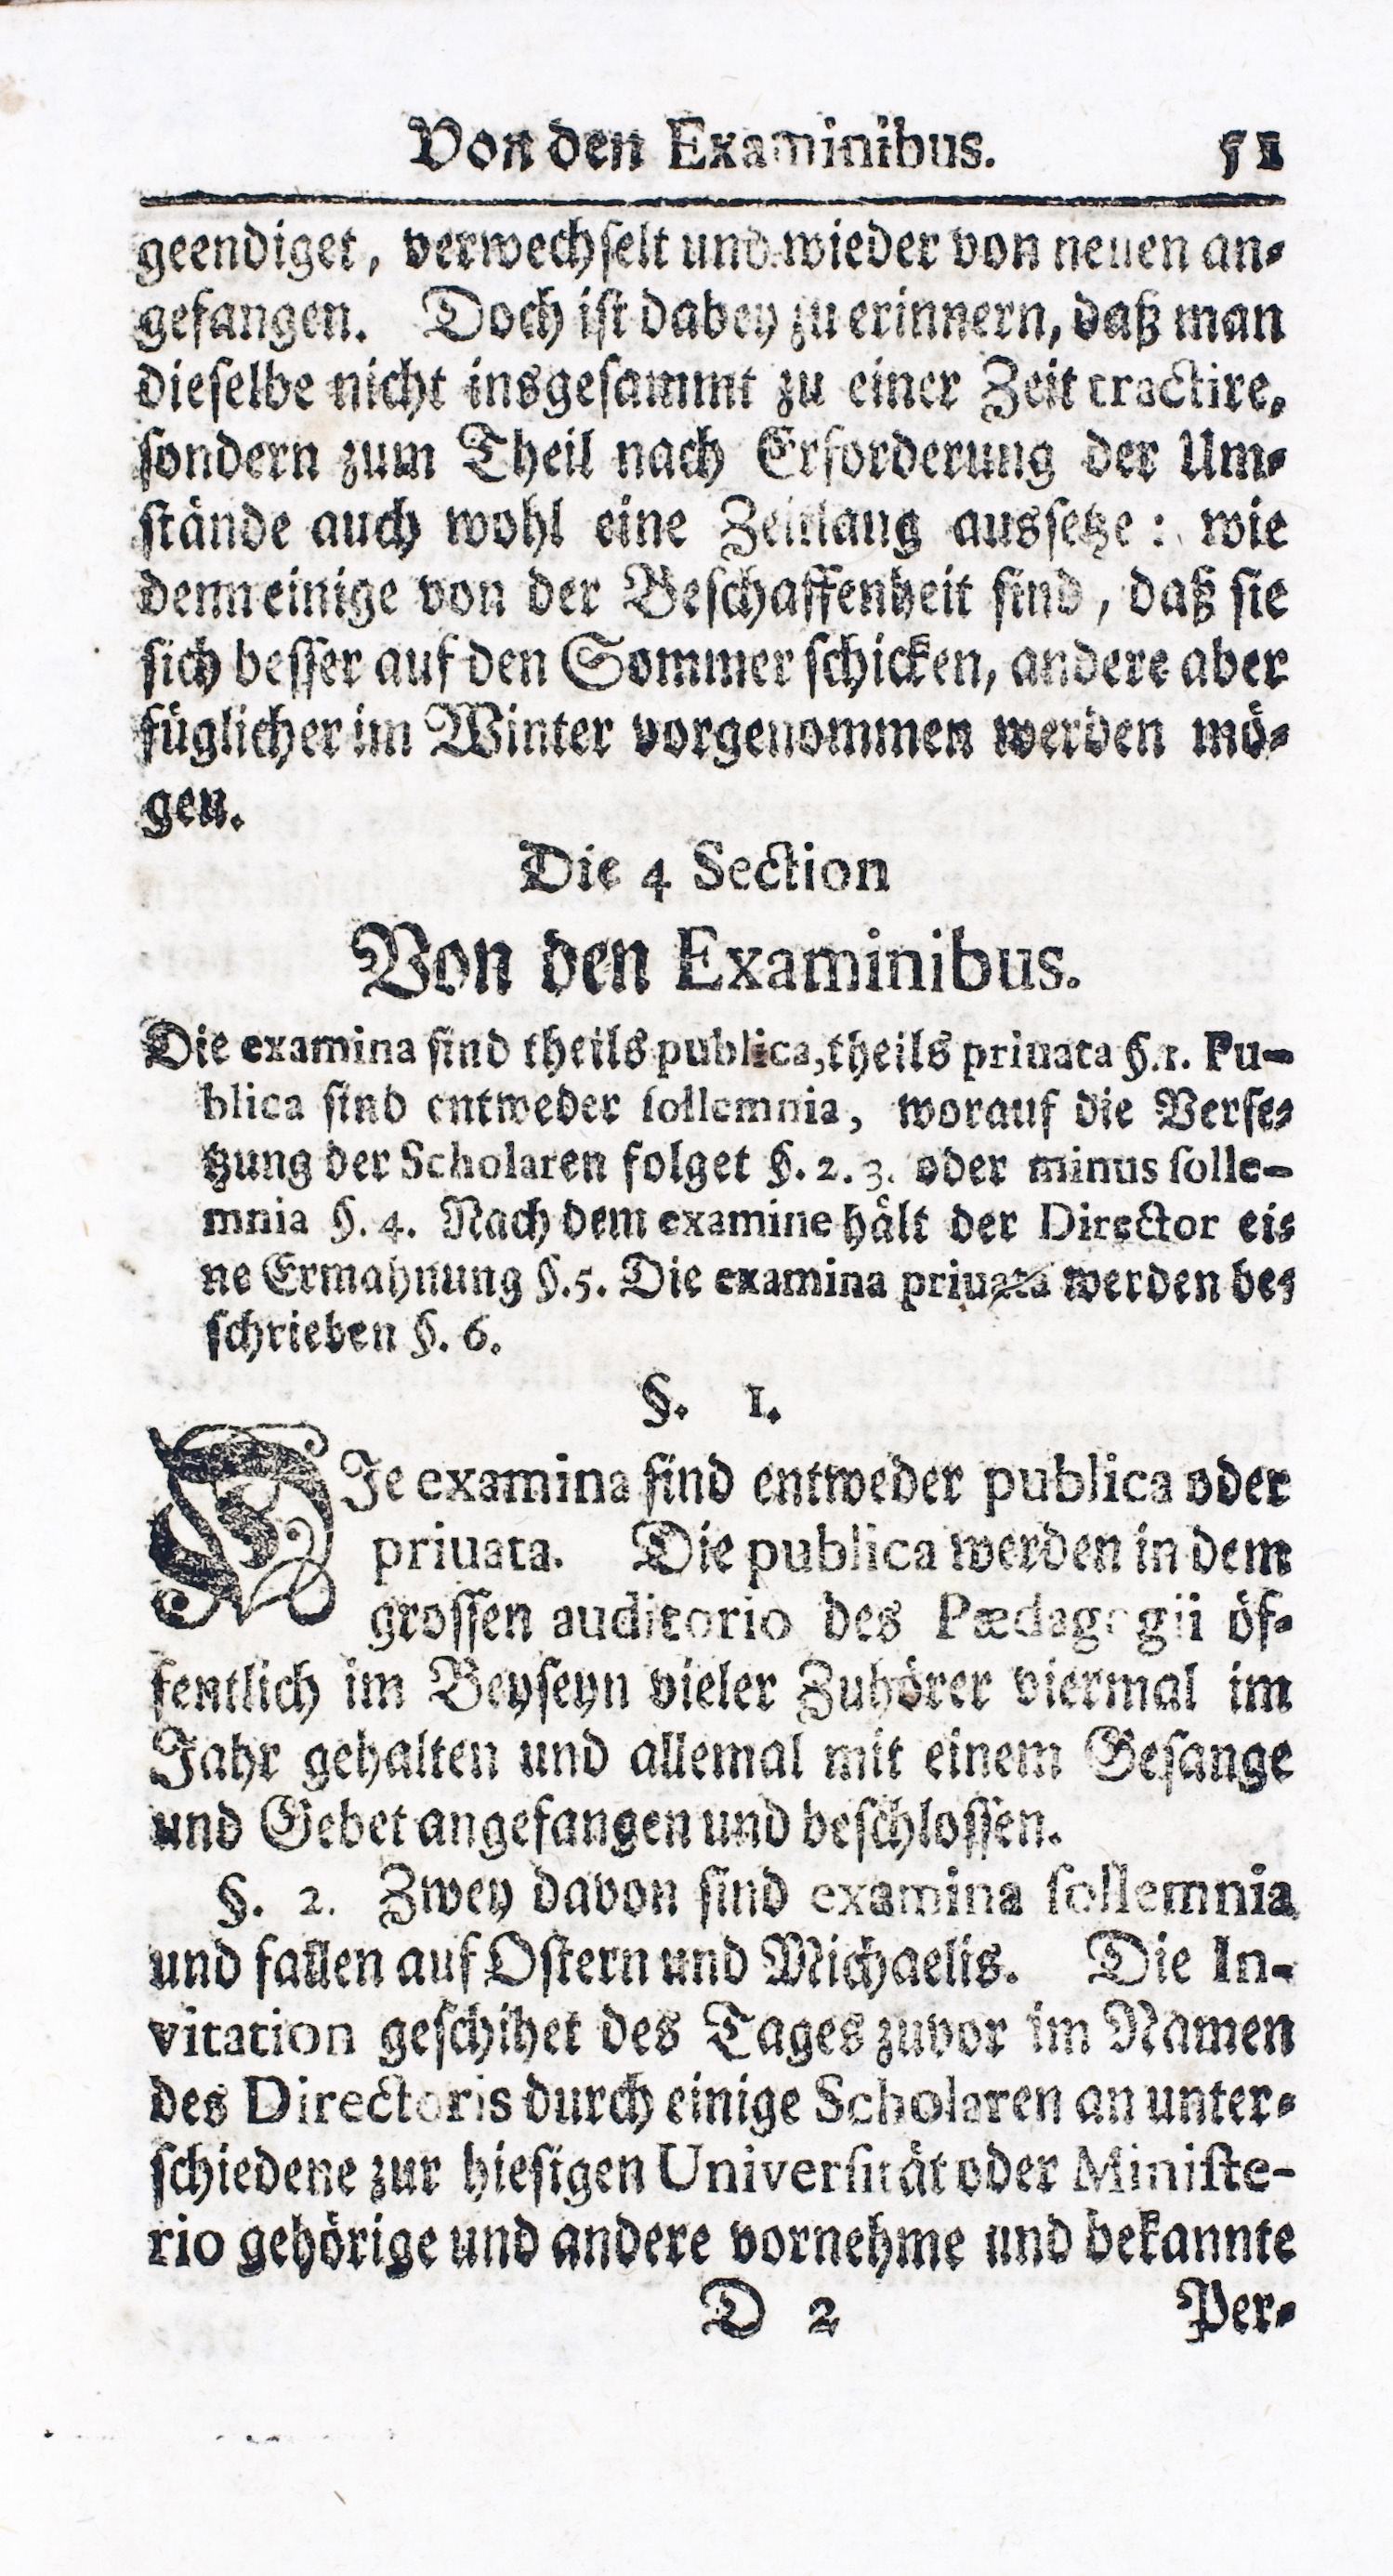 Von den Examinibus. 51
geendiget, verwechselt und wieder von neuen an-
gefangen. Doch ist dabey zu erinnern, daß man
dieselbe nicht insgesammt zu einer Zeit tractire,
sondern zum Theil nach Erforderung der Um-
stände auch wohl eine Zeitlang aussetze: wie
denn einige von der Beschaffenheit sind, daß sie
sich besser auf den Sommer schicken, andere aber
füglicher im Winter vorgenommen werden mö-
gen.
Die 4 Section
Von den Examinibus.
Die examina sind theils publica, theils priuata §. 1. Pu-
blica sind entweder sollemnia, worauf die Verse-
tzung der Scholaren folget §. 2. 3. oder minus solle-
mnia §. 4. Nach dem examine hält der Director ei-
ne Ermahnung §. 5. Die examina priuata werden be-
schrieben §. 6.
§. 1.
DIe examina sind entweder publica oder
priuata. Die publica werden in dem
grossen auditorio des Pædagogii öf-
fentlich im Beyseyn vieler Zuhörer viermal im
Jahr gehalten und allemal mit einem Gesange
und Gebet angefangen und beschlossen.
§. 2. Zwey davon sind examina sollemnia
und fallen auf Ostern und Michaelis. Die In-
vitation geschihet des Tages zuvor im Namen
des Directoris durch einige Scholaren an unter-
schiedene zur hiesigen Universität oder Ministe-
rio gehörige und andere vornehme und bekannte
D 2 Per-